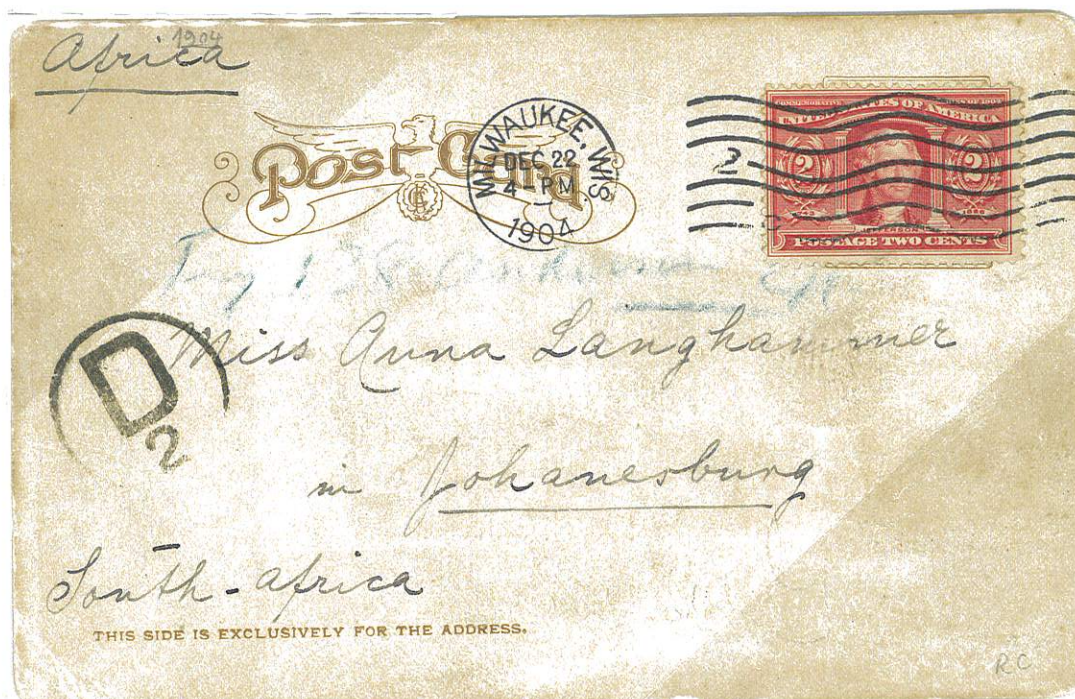 1904
Africa
Post Card
MILWAUKEE, WIS
DEC 22
4-PM
1904
2
COMMEMORATIVE SERIES OF 1904
UNITED STATES OF AMERICA
2 2
JEFFERSON
POSTAGE TWO CENTS
Try 128
Miss Anna Langhammer
D
2
in Johanesburg
South-Africa
THIS SIDE IS EXCLUSIVELY FOR THE ADDRESS.
RC